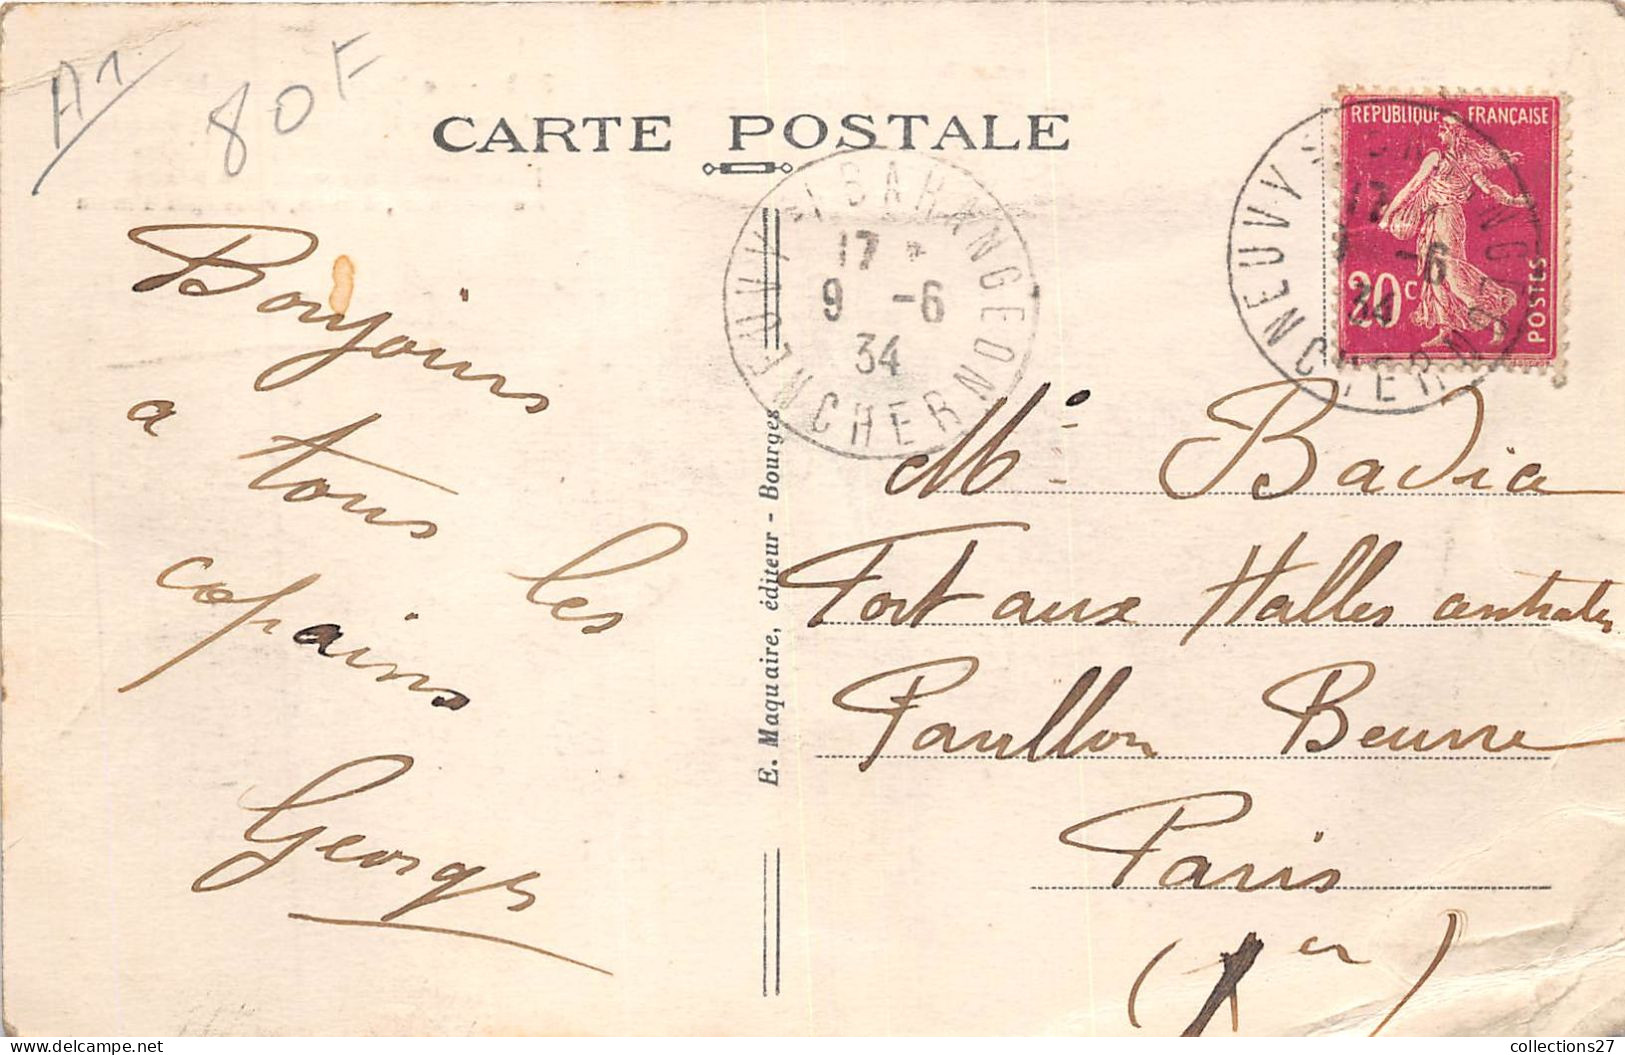 A1
80F
CARTE POSTALE
REPUBLIQUE FRANÇAISE
20c
POSTES
NEUVY S BARANGEON
CHER
17
9 -6
34
NEUVY
CHER
17
-6
34
Bonjours
a tous les
copains
Georges
E. Maquaire, éditeur - Bourges
Mr Badia
Fort aux Halles centrales
Pavillon Beurre
Paris
(1er)
collections27